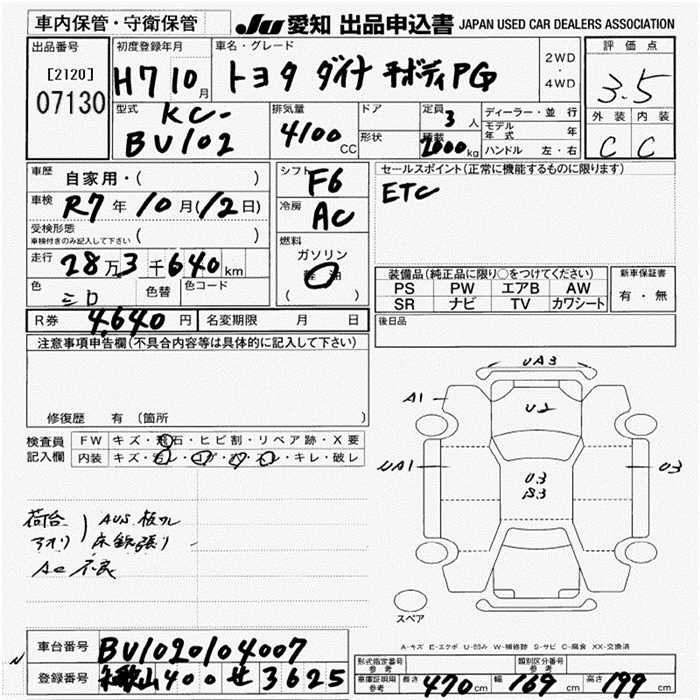 車内保管・守衛保管
JU 愛知 出品申込書 JAPAN USED CAR DEALERS ASSOCIATION
出品番号
[2120]
07130
初度登録年月
H7 10月
車名・グレード
トヨタ ダイナ 平ボディPG
2WD
・
4WD
評価点
3.5
外装 内装
C C
型式
KC-
BU102
排気量
4100 CC
ドア
形状
定員 3人
積載 2000kg
ディーラー・並行
モデル年式 年
ハンドル 左・右
車歴 自家用・( )
車検 R7年10月(12日)
受検形態
車検付きのみ記入して下さい ( )
走行 28万3千640km
色 シロ 色替 色コード
R券 4,640円 名変期限 月 日
シフト F6
冷房 AC
燃料
ガソリン
軽油
( )
セールスポイント(正常に機能するものに限ります)
ETC
装備品(純正品に限り○をつけてください)
PS PW エアB AW
SR ナビ TV カワシート
新車保証書
有・無
後日品
注意事項申告欄(不具合内容等は具体的に記入して下さい)
修復歴 有 (箇所 )
検査員
記入欄
FW キズ・飛石・ヒビ割・リペア跡・X要
内装 キズ・汚レ・コゲ・穴・スレ・キレ・破レ
荷台
アオリ
AUS 板フレ
床鉄張り
AC不良
UA3
A1
U2
UA1
U3
S3
U3
スペア
A-キズ E-エクボ U-凹み W-補修跡 S-サビ C-腐食 XX-交換済
車台番号 BU1020104007
登録番号 和歌山400せ3625
形式指定番号
参考
類別区分番号
参考
車庫証明用
参考
長さ 470cm 幅 169cm 高さ 199cm